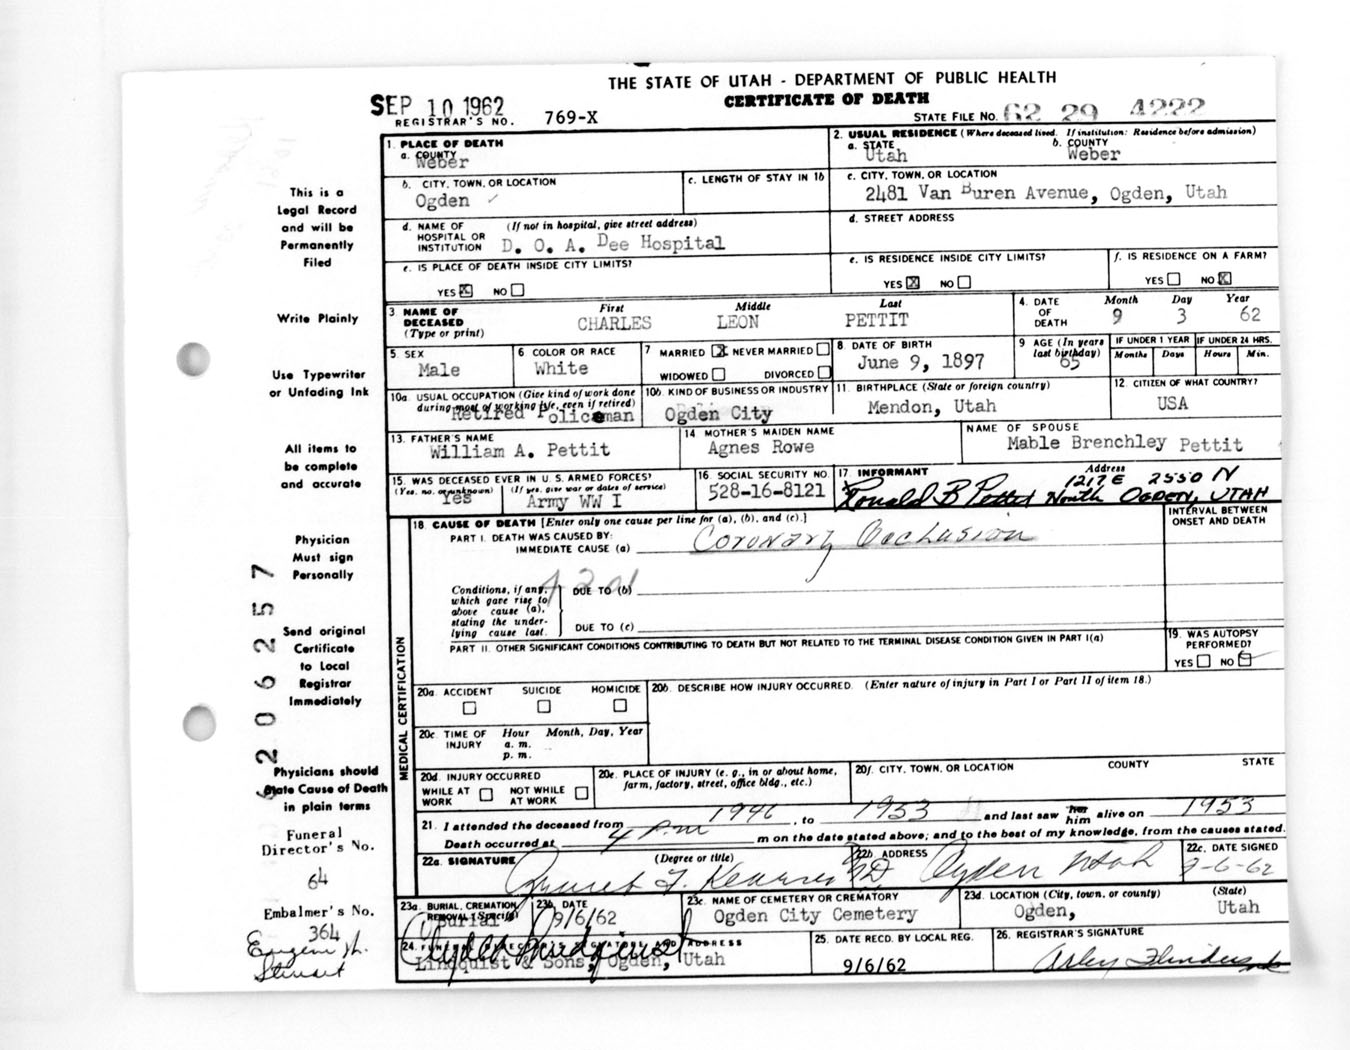 THE STATE OF UTAH - DEPARTMENT OF PUBLIC HEALTH
CERTIFICATE OF DEATH
SEP 10 1962
REGISTRAR'S NO. 769-X
STATE FILE NO. 62 29 4222
This is a
Legal Record
and will be
Permanently
Filed
Write Plainly
Use Typewriter
or Unfading Ink
All items to
be complete
and accurate
Physician
Must sign
Personally
Send original
Certificate
to Local
Registrar
Immediately
Physicians should
State Cause of Death
in plain terms
Funeral
Director's No.
64
Embalmer's No.
364
Eugene H.
Stewart
6206257
1. PLACE OF DEATH
a. COUNTY
Weber
2. USUAL RESIDENCE (Where deceased lived. If institution: Residence before admission)
a. STATE
Utah
b. COUNTY
Weber
b. CITY, TOWN, OR LOCATION
Ogden
c. LENGTH OF STAY IN 1b
c. CITY, TOWN, OR LOCATION
2481 Van Buren Avenue, Ogden, Utah
d. NAME OF (If not in hospital, give street address)
HOSPITAL OR
INSTITUTION D. O. A. Dee Hospital
d. STREET ADDRESS
e. IS PLACE OF DEATH INSIDE CITY LIMITS?
YES X NO
e. IS RESIDENCE INSIDE CITY LIMITS?
YES X NO
f. IS RESIDENCE ON A FARM?
YES NO X
3 NAME OF
DECEASED
(Type or print)
First Middle Last
CHARLES LEON PETTIT
4. DATE
OF
DEATH
Month Day Year
9 3 62
5. SEX
Male
6 COLOR OR RACE
White
7 MARRIED X NEVER MARRIED
WIDOWED DIVORCED
8. DATE OF BIRTH
June 9, 1897
9 AGE (In years
last birthday)
65
IF UNDER 1 YEAR
Months Days
IF UNDER 24 HRS.
Hours Min.
10a. USUAL OCCUPATION (Give kind of work done
during most of working life, even if retired)
Retired Policeman
10b. KIND OF BUSINESS OR INDUSTRY
Ogden City
11. BIRTHPLACE (State or foreign country)
Mendon, Utah
12. CITIZEN OF WHAT COUNTRY?
USA
13. FATHER'S NAME
William A. Pettit
14 MOTHER'S MAIDEN NAME
Agnes Rowe
NAME OF SPOUSE
Mable Brenchley Pettit
15. WAS DECEASED EVER IN U. S. ARMED FORCES?
(Yes, no, or unknown) (If yes, give war or dates of service)
Yes Army WW I
16. SOCIAL SECURITY NO.
528-16-8121
17. INFORMANT Address
1217 E 2550 N
Ronald B Pettit North OGDEN, UTAH
MEDICAL CERTIFICATION
18. CAUSE OF DEATH [Enter only one cause per line for (a), (b), and (c).]
PART I. DEATH WAS CAUSED BY:
IMMEDIATE CAUSE (a) Coronary Occlusion
INTERVAL BETWEEN
ONSET AND DEATH
Conditions, if any,
which gave rise to
above cause (a),
stating the under-
lying cause last.
DUE TO (b)
DUE TO (c)
PART II. OTHER SIGNIFICANT CONDITIONS CONTRIBUTING TO DEATH BUT NOT RELATED TO THE TERMINAL DISEASE CONDITION GIVEN IN PART I(a)
19. WAS AUTOPSY
PERFORMED?
YES NO
20a. ACCIDENT SUICIDE HOMICIDE
20b. DESCRIBE HOW INJURY OCCURRED. (Enter nature of injury in Part I or Part II of item 18.)
20c. TIME OF
INJURY
Hour Month, Day, Year
a. m.
p. m.
20d. INJURY OCCURRED
WHILE AT
WORK
NOT WHILE
AT WORK
20e. PLACE OF INJURY (e. g., in or about home,
farm, factory, street, office bldg., etc.)
20f. CITY, TOWN, OR LOCATION COUNTY STATE
21. I attended the deceased from 1946, to 1953 and last saw her him alive on 1953
Death occurred at 4 P.m m on the date stated above; and to the best of my knowledge, from the causes stated.
22a. SIGNATURE (Degree or title)
22b. ADDRESS
Ogden Utah
22c. DATE SIGNED
9-6-62
23a. BURIAL, CREMATION
REMOVAL (Specify)
Burial
23b. DATE
9/6/62
23c. NAME OF CEMETERY OR CREMATORY
Ogden City Cemetery
23d. LOCATION (City, town, or county) (State)
Ogden, Utah
24. FUNERAL DIRECTOR'S SIGNATURE AND ADDRESS
Lindquist & Sons, Ogden, Utah
25. DATE RECD. BY LOCAL REG.
9/6/62
26. REGISTRAR'S SIGNATURE